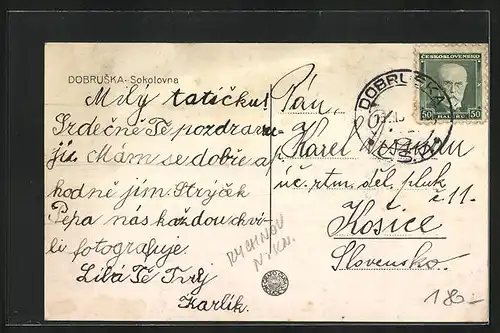 DOBRUŠKA - Sokolovna
Milý tatíčku!
Srdečně Tě pozdravu-
ji. Mám se dobře a
hodně jím. Strýček
Pepa nás každou chví
li fotografuje.
Líbá Tě Tvůj
Karlík.
RYCHNOV
N./KN.
Pán,
Karel
úč. rtm. děl. pluk
č 11.
Košice
Slovensko.
DOBRUŠKA
ČESKOSLOVENSKO
50 HALÉŘŮ 50
180-